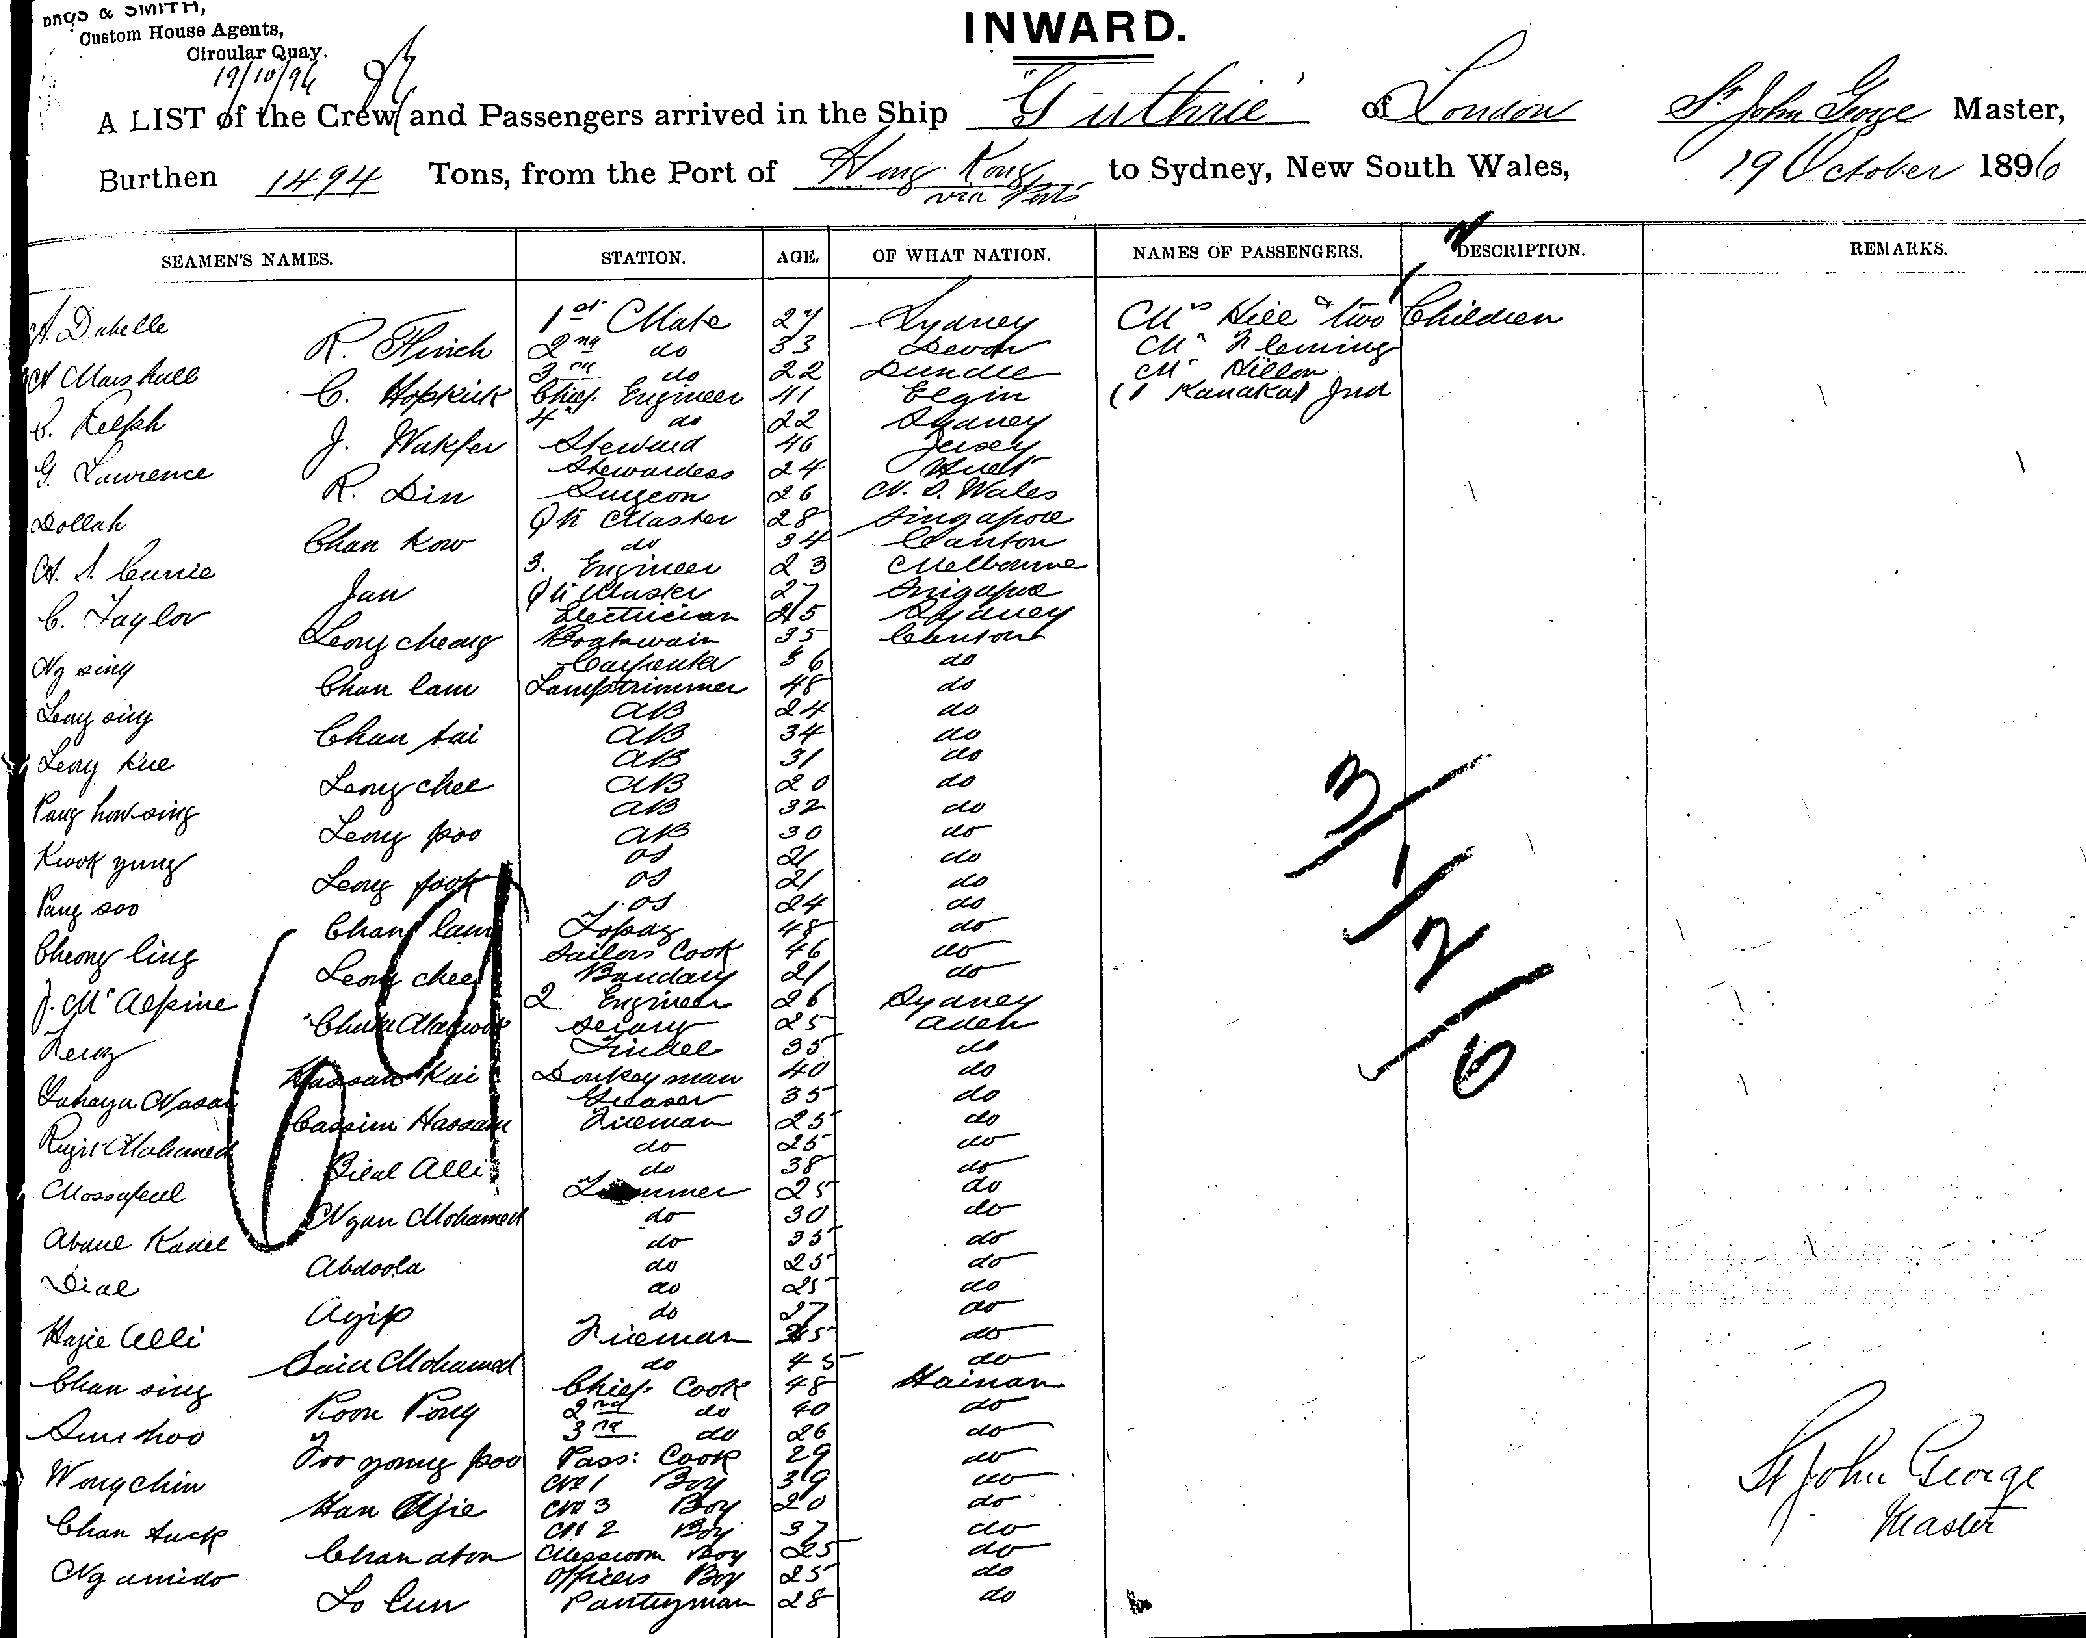 & SMITH,
Custom House Agents,
Circular Quay.
19/10/96
INWARD.
A LIST of the Crew and Passengers arrived in the Ship "Guthrie" of London St John George Master,
Burthen 1494 Tons, from the Port of Hong Kong via Ports to Sydney, New South Wales, 19 October 1896
SEAMEN'S NAMES. STATION. AGE. OF WHAT NATION. NAMES OF PASSENGERS. DESCRIPTION. REMARKS.
A Dabelle 1st Mate 27 Sydney Mrs Hill & two Children
R. Flinch 2nd do 33 Devon Mr Fleming
A Marshall 3rd do 22 Dundee Mr Dillon
C. Hopkirk Chief Engineer 41 Elgin (1 Kanaka)
R. Relph 4th do 22 Sydney
J. Walker Steward 46 Jersey
G. Lawrence Stewardess 24
R. Din Surgeon 26 N. S. Wales
Dollah Qr Master 28 Singapore
Chan Kow do 34 Canton
A. S. Currie 3. Engineer 23 Melbourne
Jan Qr Master 27 Singapore
C. Taylor Electrician 25 Sydney
Leong cheong Boatswain 35 Canton
Ng sing Carpenter 36 do
Chan lam Lamptrimmer 48 do
Leong sing AB 24 do
Chan tai AB 34 do
Leong kue AB 31 do
Leong chee AB 20 do
Pang how sing AB 32 do
Leong poo AB 30 do
Kwok yung OS 21 do
Leong fook OS 21 do
Pang soo OS 24 do
Chan lam Topaz 48 do
Cheong ling Sailors Cook 46 do
Leong chee Bandary 21 do
J. McAlpine 2 Engineer 26 Sydney
Serang 25 Aden
Feroz Tindel 35 do
Hassan Kai Donkeyman 40 do
Greaser 35 do
Cassim Hassan Fireman 25 do
Mohamed do 25 do
Bilal Alli do 38 do
Trimmer 25 do
Ngan Mohamed do 30 do
do 35 do
Abdoola do 25 do
Dial do 25 do
Agip do 27 do
Hajie Alli Fireman 35 do
Said Mohamed do 45 do
Chan sing Chief Cook 48 Hainan
Koon Pong 2nd do 40 do
Sun hoo 3rd do 26 do
Foo yong poo Pass: Cook 29 do
Wong chin No 1 Boy 39 do
Han Ajie No 3 Boy 20 do
Chan tuck No 2 Boy 37 do
Chan aton Messroom Boy 25 do
Ng amido Officers Boy 25 do
Lo lun Pantryman 28 do
3
1
2
6
61
St John George
Master